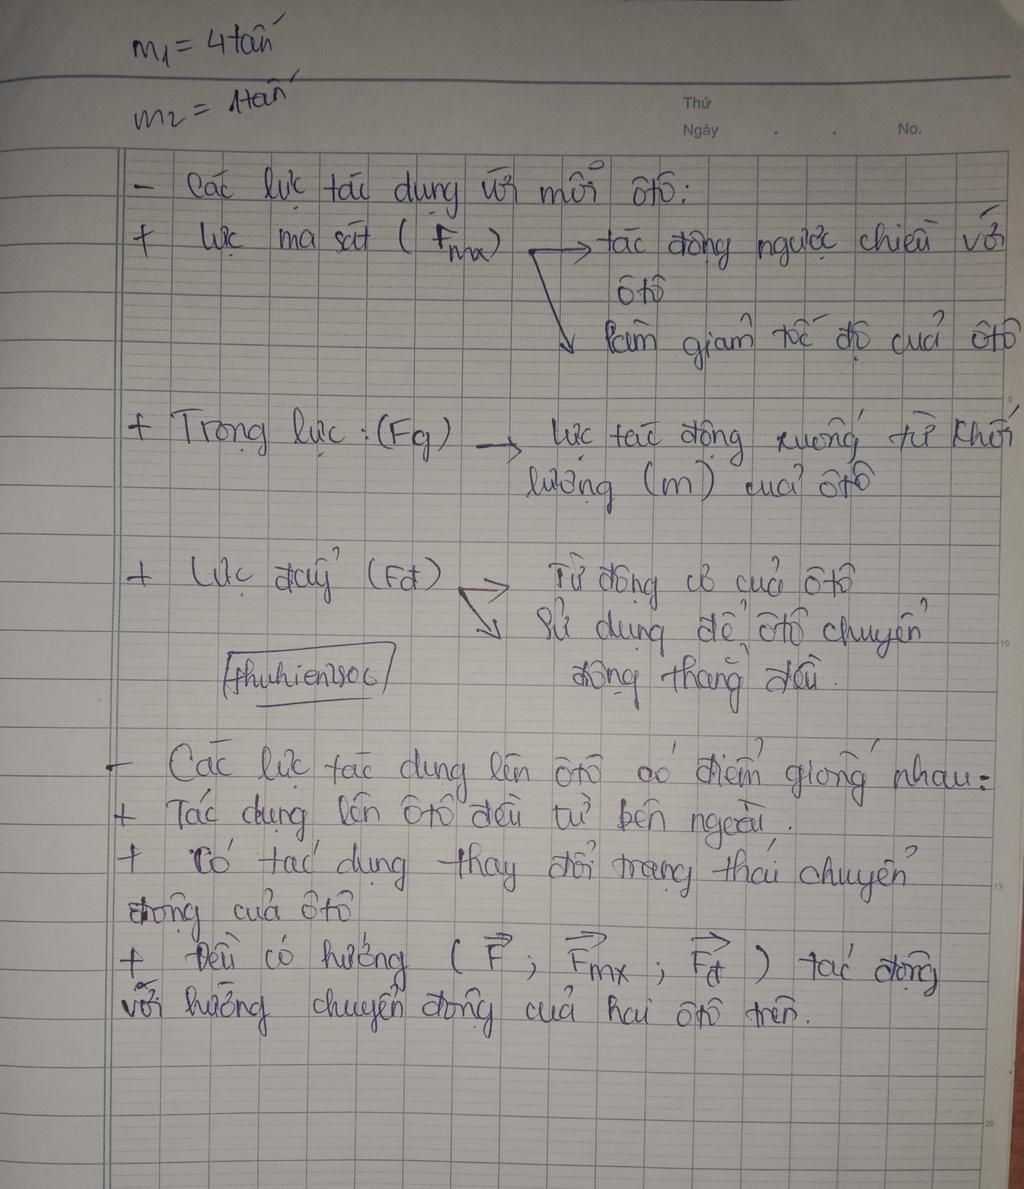 m1 = 4 tấn
m2 = 1 tấn
Thứ
Ngày . . No.
- Các lực tác dụng với mỗi ôtô:
+ Lực ma sát (Fma) → tác động ngược chiều với
ôtô
Làm giảm tốc độ cuả ôtô
+ Trọng lực: (Fg) → lực tác động xuống từ khối
lượng (m) cuả ôtô
+ Lực đẩy (Fđ) → Từ động cơ cuả ôtô
Sử dụng để ôtô chuyển
động thẳng đều.
thuhien2906
- Các lực tác dụng lên ôtô có điểm giống nhau:
+ Tác dụng lên ôtô đều từ bên ngoài.
+ Có tác dụng thay đổi trạng thái chuyển
động cuả ôtô
+ Đều có hướng (F; Fmx; Fđ) tác động
với hướng chuyển động cuả hai ôtô trên.
5
10
15
20